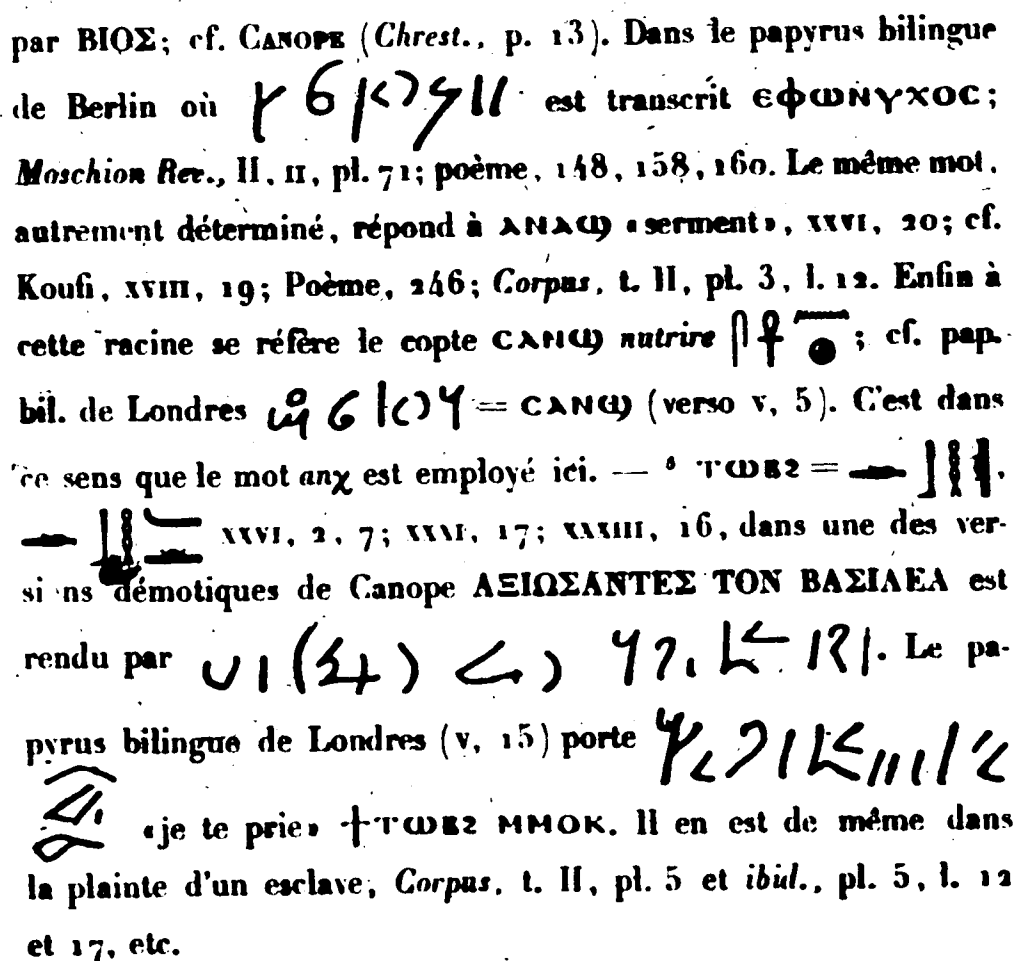 par ΒΙΟΣ; cf. CANOPE (Chrest., p. 13). Dans le papyrus bilingue
de Berlin où est transcrit ⲉⲫⲱⲛⲩⲭⲟⲥ;
Moschion Rev., II, II, pl. 71; poème, 148, 158, 160. Le même mot,
autrement déterminé, répond à ⲁⲛⲁϣ «serment», XXVI, 20; cf.
Koufi, XVIII, 19; Poème, 246; Corpus, t. II, pl. 3, l. 12. Enfin à
cette racine se réfère le copte ⲥⲁⲛϣ nutrire ; cf. pap.
bil. de Londres = ⲥⲁⲛϣ (verso V, 5). C'est dans
ce sens que le mot anχ est employé ici. — ⲧⲱⲃϩ =
XXVI, 2, 7; XXVI, 17; XXXIII, 16, dans une des ver-
sions démotiques de Canope ΑΞΙΩΣΑΝΤΕΣ ΤΟΝ ΒΑΣΙΛΕΑ est
rendu par . Le pa-
pyrus bilingue de Londres (V, 15) porte
«je te prie» ϯⲧⲱⲃϩ ⲙⲙⲟⲕ. Il en est de même dans
la plainte d'un esclave, Corpus, t. II, pl. 5 et ibid., pl. 5, l. 12
et 17, etc.